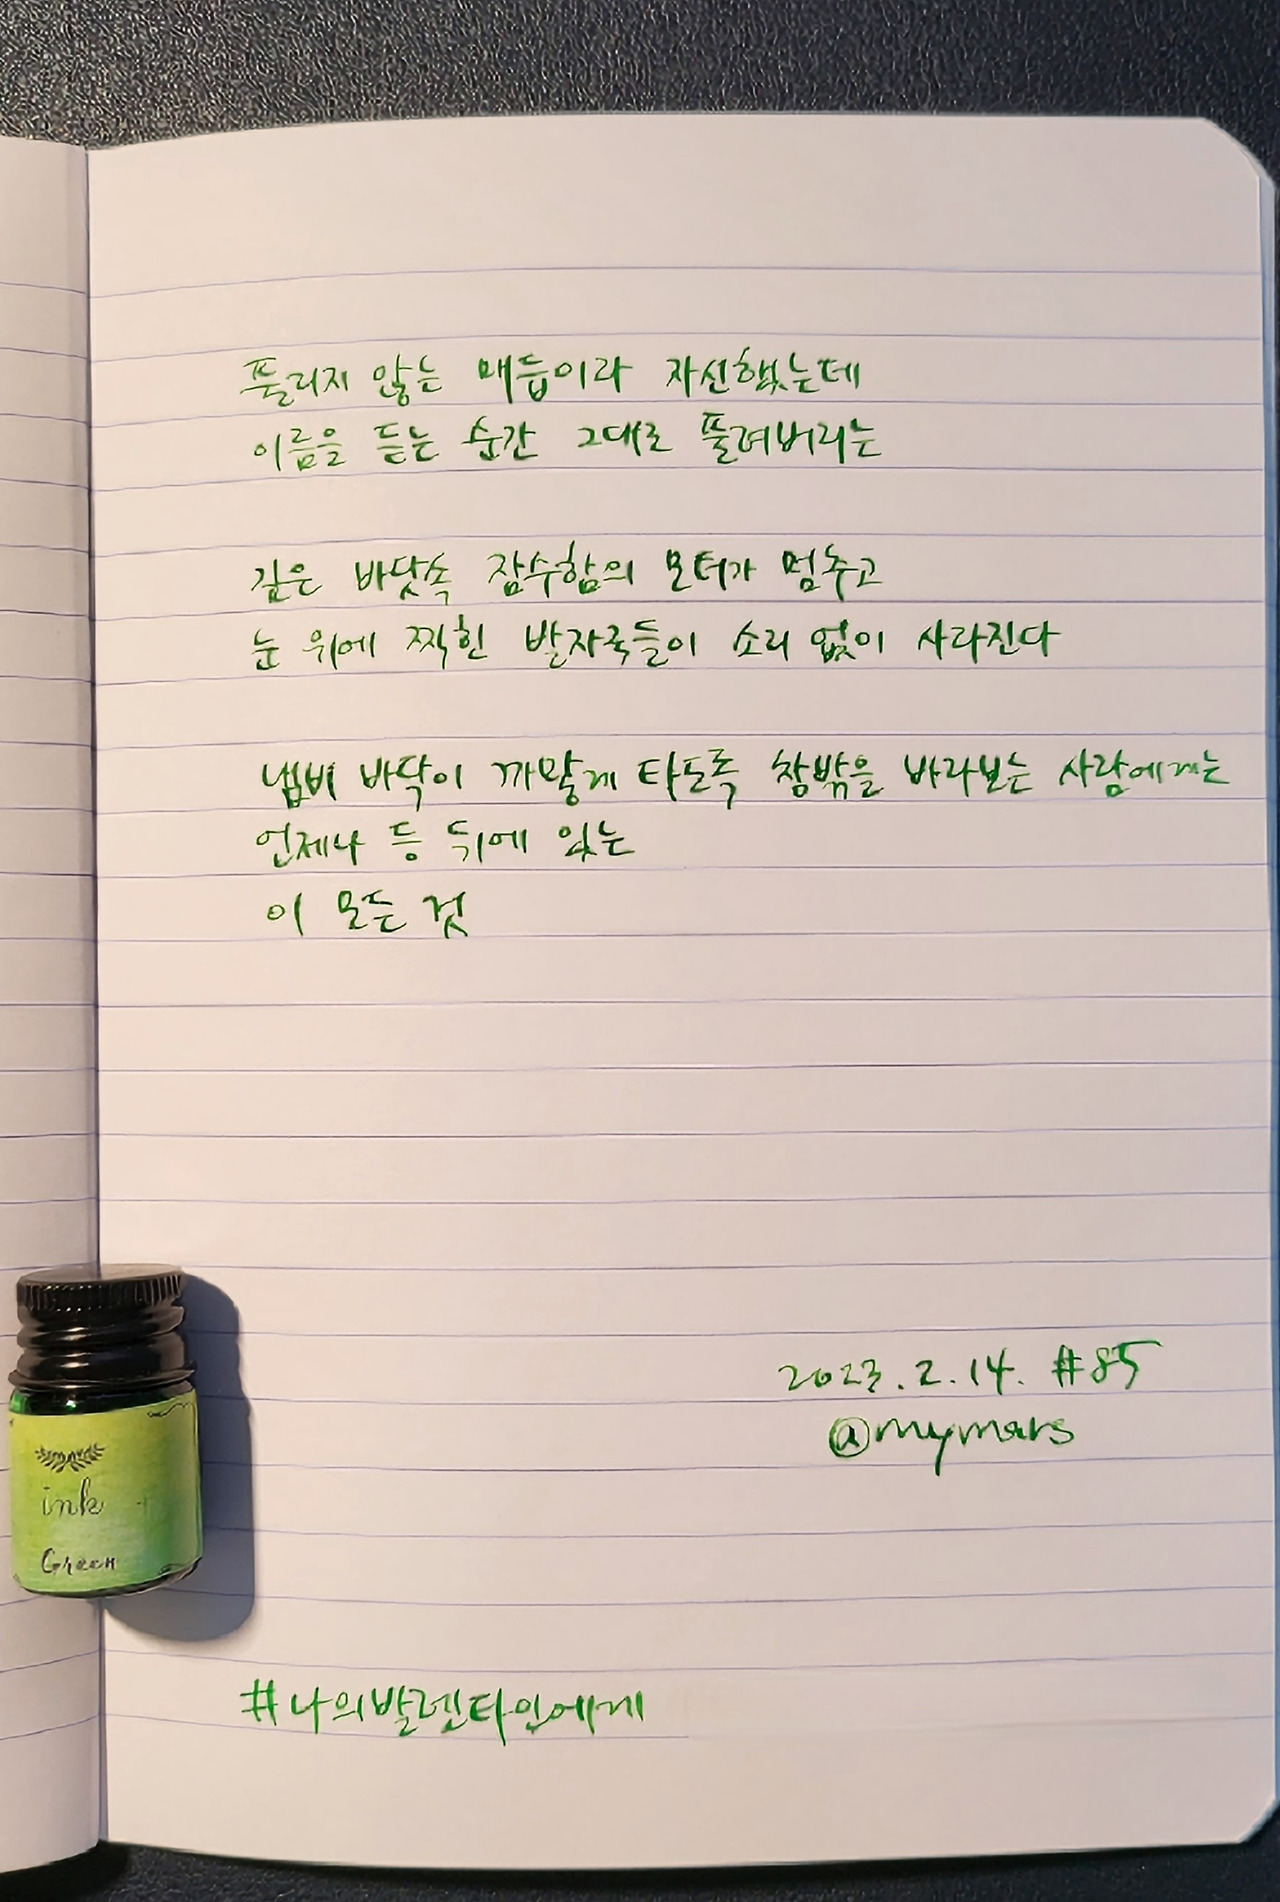 풀리지 않는 매듭이라 자신했는데
이름을 듣는 순간 그대로 풀려버리는
깊은 바닷속 잠수함의 모터가 멈추고
눈 위에 찍힌 발자국들이 소리 없이 사라진다
냄비 바닥이 까맣게 타도록 창밖을 바라보는 사람에게는
언제나 등 뒤에 있는
이 모든 것
2023.2.14. #85
@mymars
ink
Green
#나의발렌타인에게